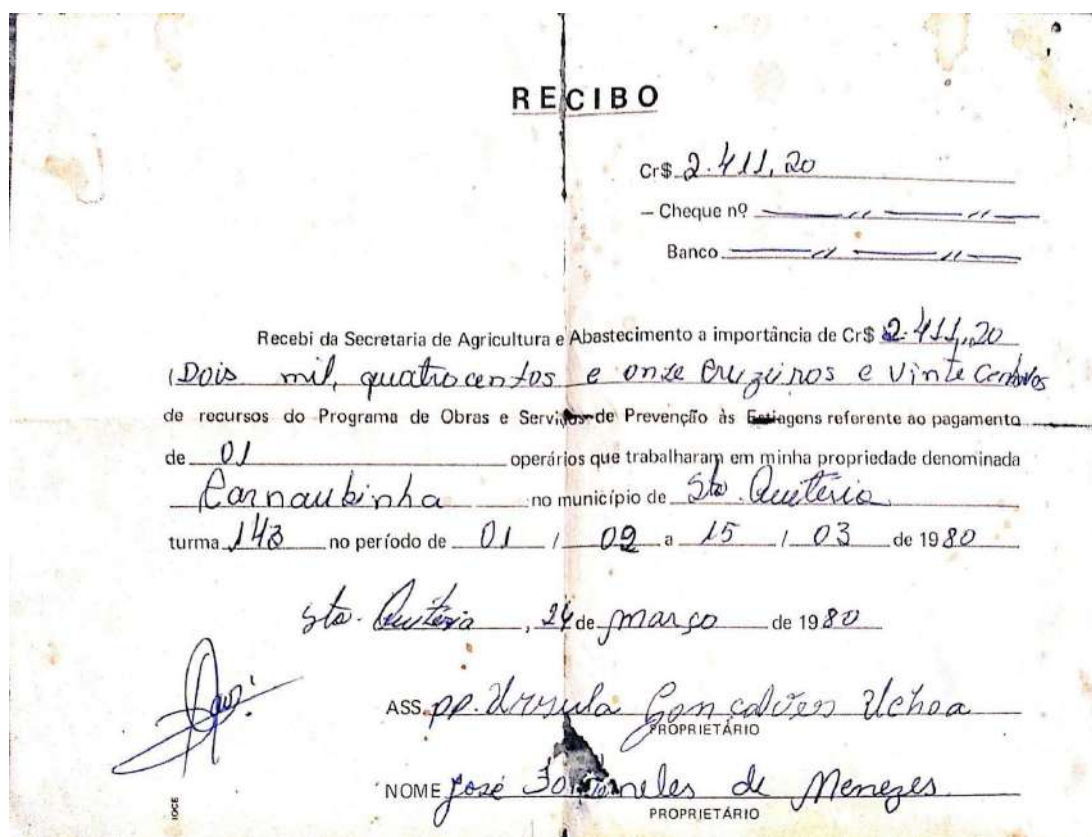 RECIBO
Cr$ 2.411,20
– Cheque nº — " — " —
Banco — " — " —
Recebi da Secretaria de Agricultura e Abastecimento a importância de Cr$ 2.411,20
(Dois mil, quatrocentos e onze Cruzeiros e Vinte Centavos
de recursos do Programa de Obras e Serviços de Prevenção às Estiagens referente ao pagamento
de 01 operários que trabalharam em minha propriedade denominada
Carnaubinha no município de Sta. Quitéria
turma 143 no período de 01 / 02 a 15 / 03 de 1980
Sta. Quitéria, 24 de março de 1980
ASS. pp. Ursula Gonçalves Uchoa
PROPRIETÁRIO
NOME José de Menezes
PROPRIETÁRIO
IOCE